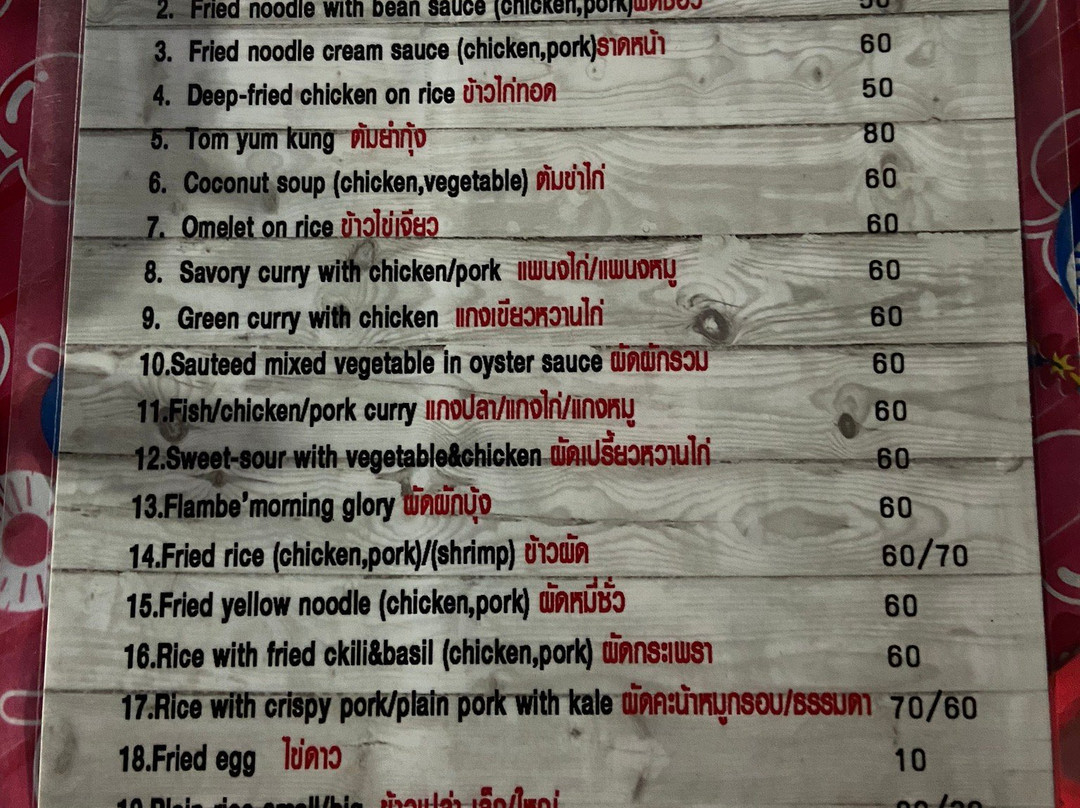 2. Fried noodle with bean sauce (chicken,pork)ผัดซีอิ้ว 50
3. Fried noodle cream sauce (chicken,pork)ราดหน้า 60
4. Deep-fried chicken on rice ข้าวไก่ทอด 50
5. Tom yum kung ต้มยำกุ้ง 80
6. Coconut soup (chicken,vegetable) ต้มข่าไก่ 60
7. Omelet on rice ข้าวไข่เจียว 60
8. Savory curry with chicken/pork แพนงไก่/แพนงหมู 60
9. Green curry with chicken แกงเขียวหวานไก่ 60
10.Sauteed mixed vegetable in oyster sauce ผัดผักรวม 60
11.Fish/chicken/pork curry แกงปลา/แกงไก่/แกงหมู 60
12.Sweet-sour with vegetable&chicken ผัดเปรี้ยวหวานไก่ 60
13.Flambe'morning glory ผัดผักบุ้ง 60
14.Fried rice (chicken,pork)/(shrimp) ข้าวผัด 60/70
15.Fried yellow noodle (chicken,pork) ผัดหมี่ซั่ว 60
16.Rice with fried ckili&basil (chicken,pork) ผัดกระเพรา 60
17.Rice with crispy pork/plain pork with kale ผัดคะน้าหมูกรอบ/ธรรมดา 70/60
18.Fried egg ไข่ดาว 10
19.Plain rice small/big ข้าวเปล่า เล็ก/ใหญ่